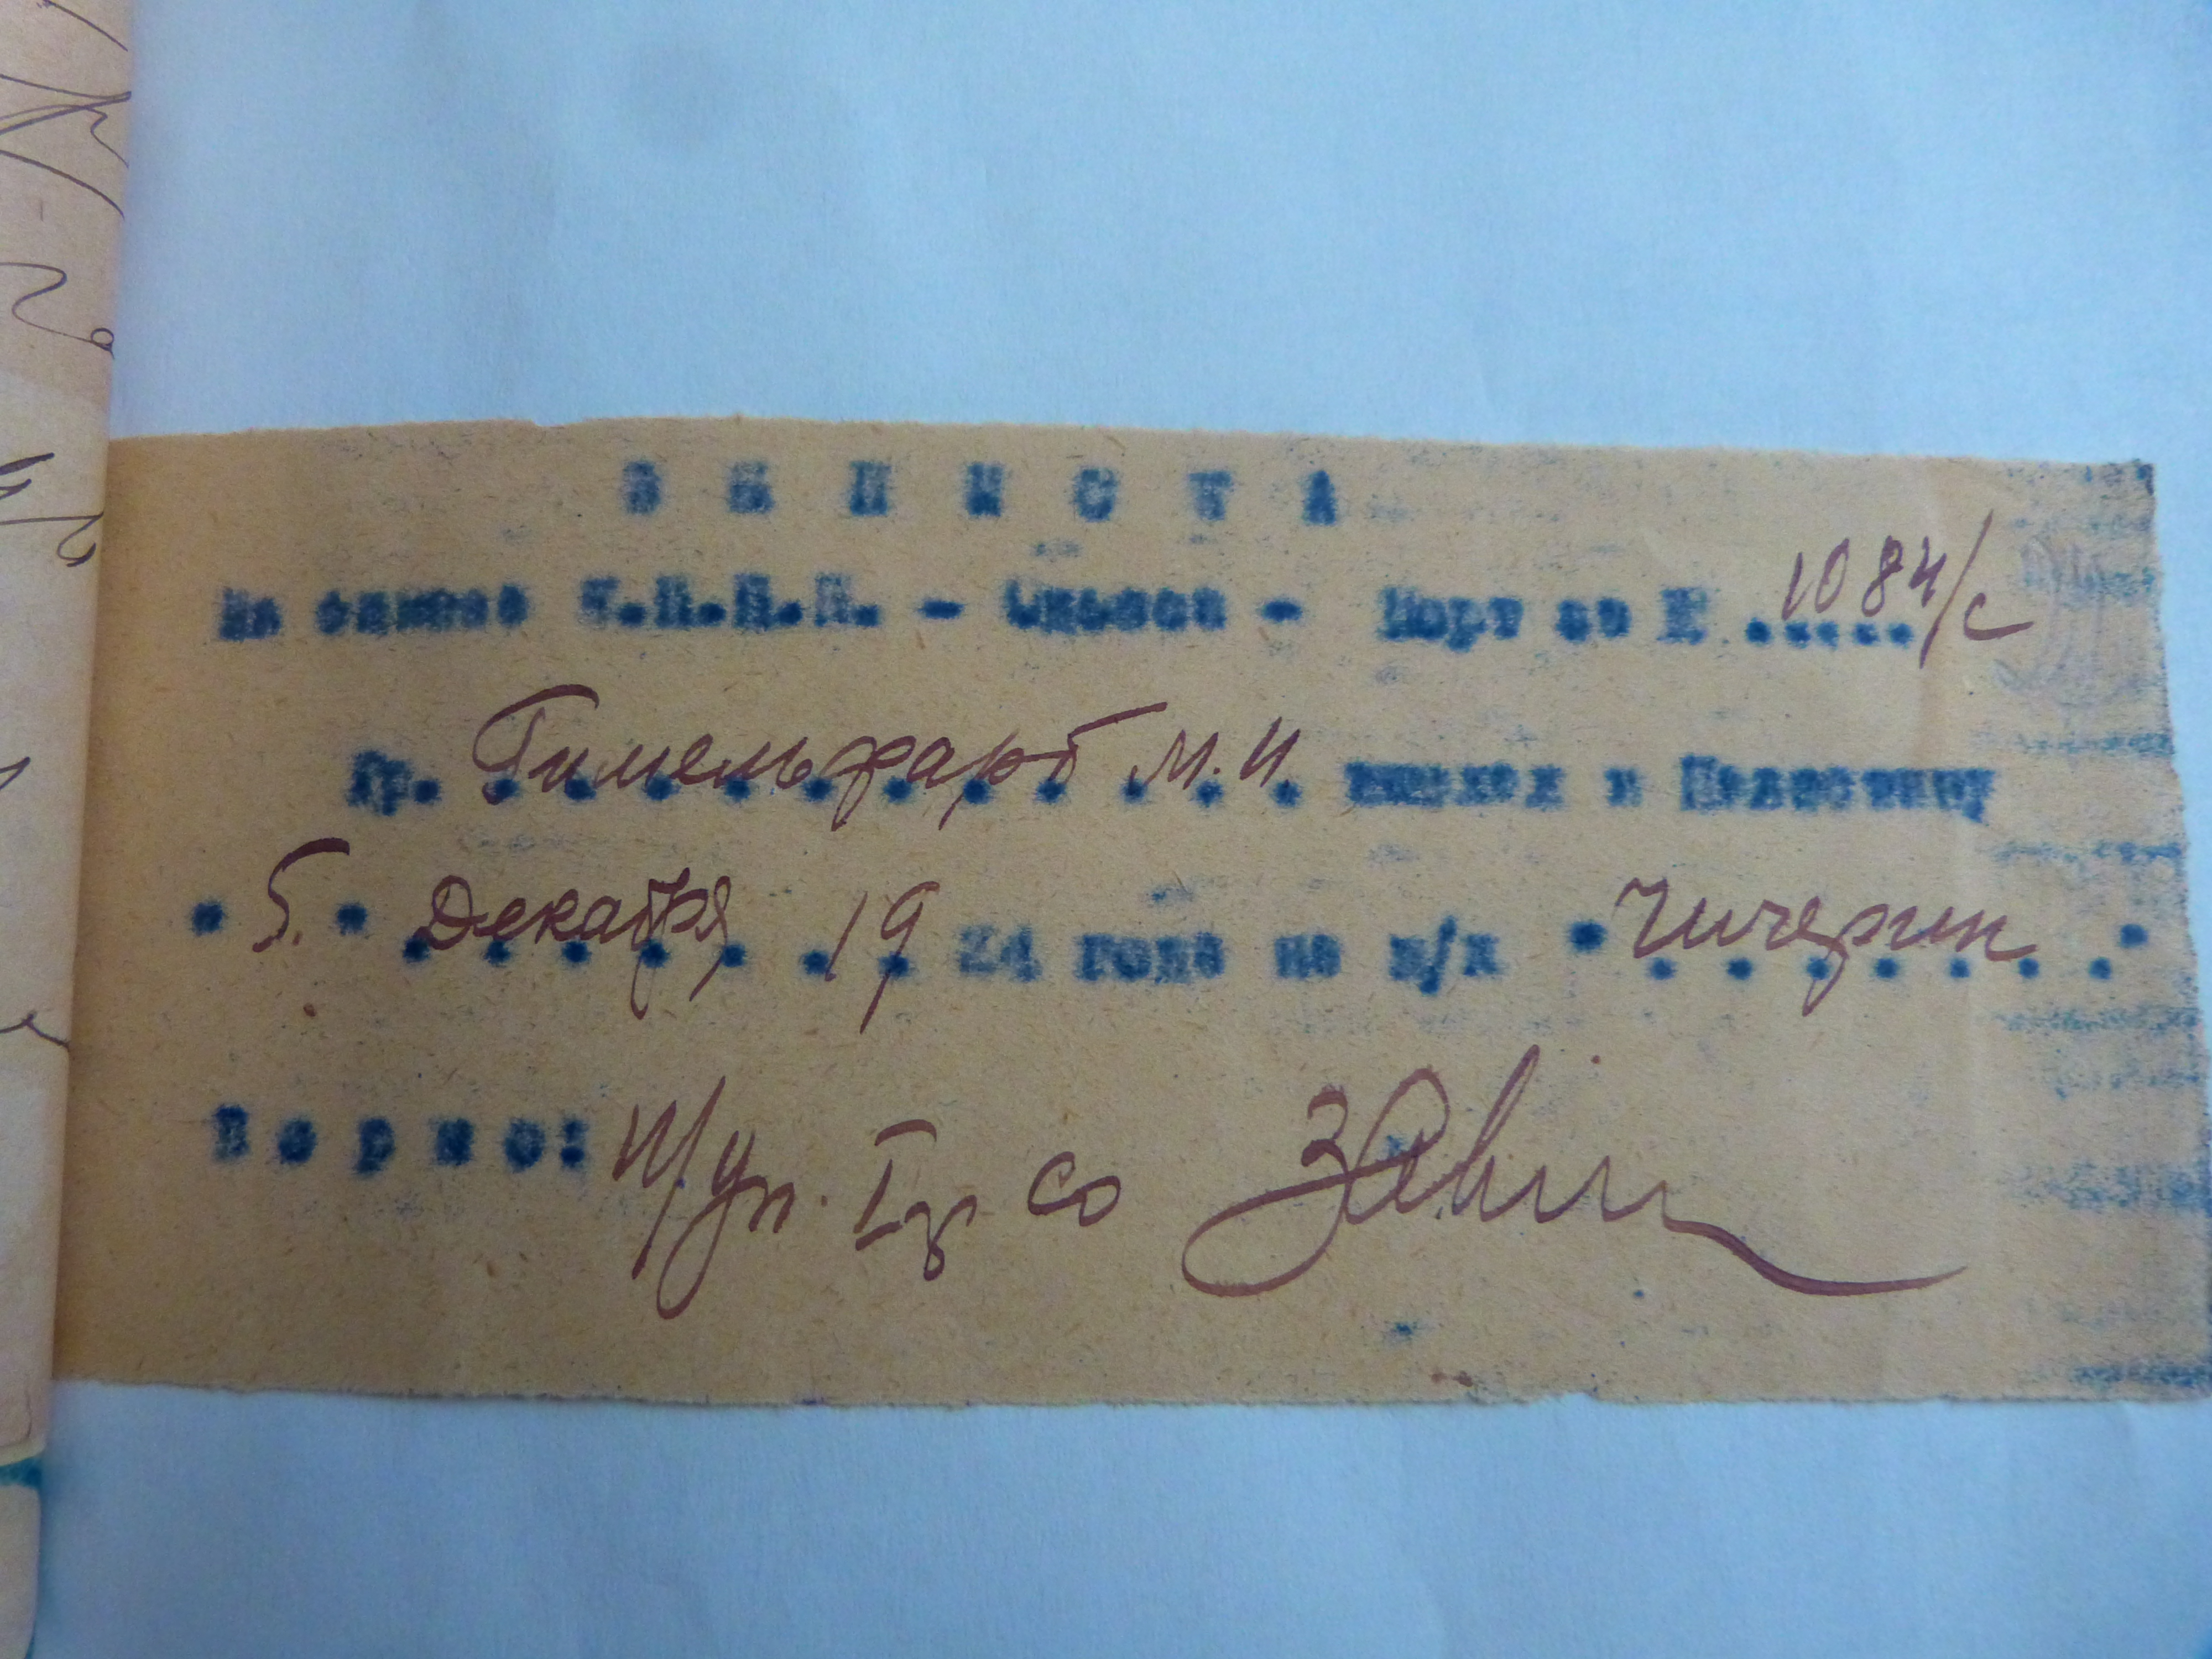 ВЫПИСТА
Из списка К.П.П.П. - Одесса - Порт за № ..... 1084/с
Гр. Гимельфарб М. И. выехал в Палестину
"5." Декабря 1924 года на п/х "Чичерин"
Верно: Уп.